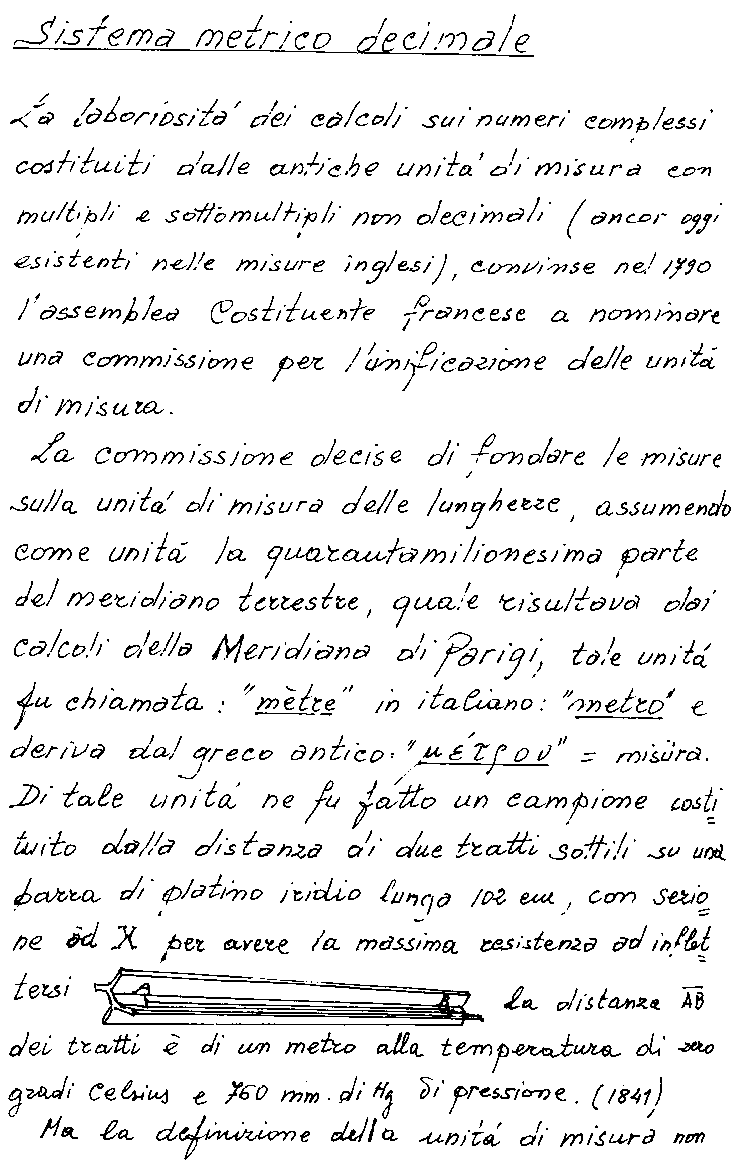 Sistema metrico decimale
La laboriositá dei calcoli sui numeri complessi
costituiti dalle antiche unitá di misura con
multipli e sottomultipli non decimali (ancor oggi
esistenti nelle misure inglesi), convinse nel 1790
l'assemblea Costituente francese a nominare
una commissione per l'unificazione delle unitá
di misura.
La commissione decise di fondare le misure
sulla unitá di misura delle lunghezze, assumendo
come unitá la quarautamilionesima parte
del meridiano terrestre, quale risultava dai
calcoli della Meridiana di Parigi, tale unitá
fu chiamata: "mètre" in italiano: "metro" e
deriva dal greco antico: "μέτρον" = misura.
Di tale unitá ne fu fatto un campione costi
tuito dalla distanza di due tratti sottili su una
barra di platino iridio lunga 102 cm, con sezio
ne ad X per avere la massima resistenza ad inflet
tersi la distanza AB
dei tratti è di un metro alla temperatura di zero
gradi Celsius e 760 mm. di Hg di pressione. (1841)
Ma la definizione della unitá di misura non